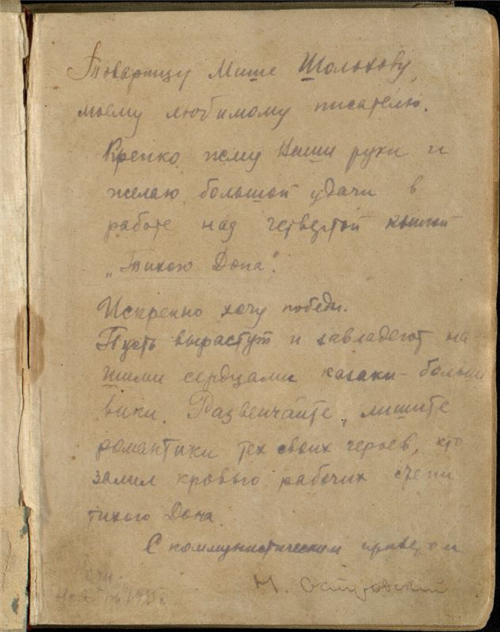 Товарищу Мише Шолохову,
моему любимому писателю.
Крепко жму Ваши руки и
желаю большой удачи в
работе над четвертой книгой
„Тихого Дона".
Искренно хочу победы.
Пусть вырастут и завладеют на-
шими сердцами казаки-больше
вики. Развенчайте, лишите
романтики тех своих героев, кто
залил кровью рабочих степи
тихого Дона.
С коммунистическим приветом
Н. Островский